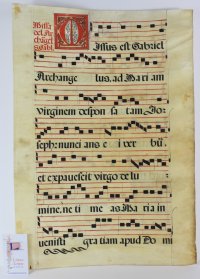 Missus est Gabriel
Archange lus, ad Mariam
Virginem despon sa tam, Jo-
seph: nunci ans e i xxr bū:
et expavescit virgo de lu
mine, ne ti me as Ma ria in
venisti gra tiam apud Do mi